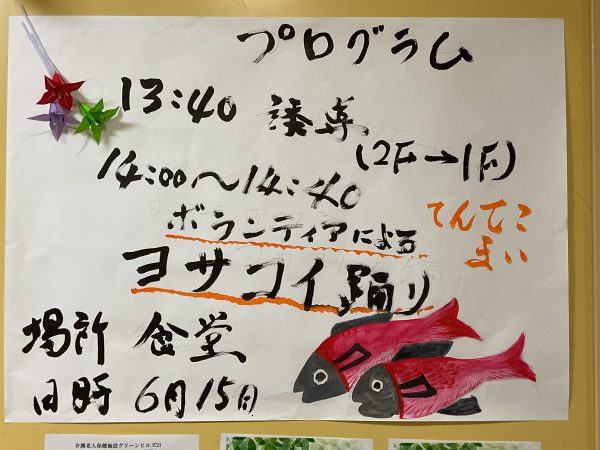 プログラム
13:40 誘導
(2F→1F)
14:00〜14:40
ボランティアによる
てんてこ
まい
ヨサコイ踊り
場所 食堂
日時 6月15日
介護老人保健施設グリーンヒルズ21